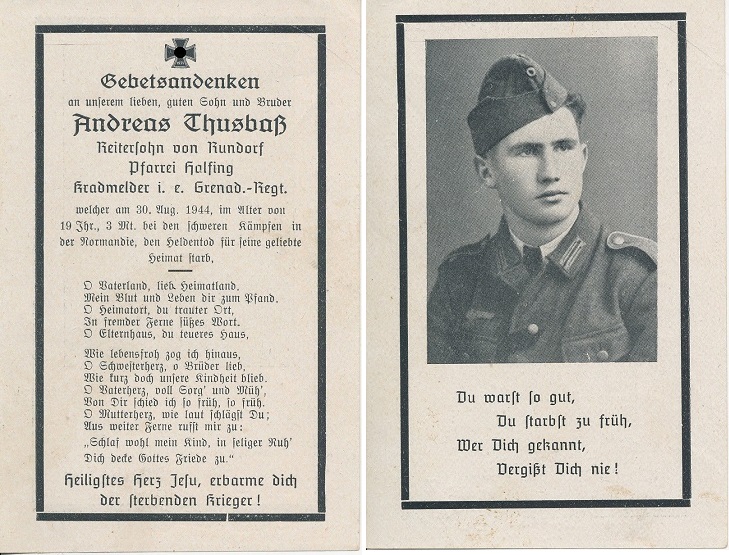 Gebetsandenken
an unserem lieben, guten Sohn und Bruder
Andreas Thusbaß
Reitersohn von Rundorf
Pfarrei Halfing
Kradmelder i. e. Grenad.-Regt.
welcher am 30. Aug. 1944, im Alter von
19 Jhr., 3 Mt. bei den schweren Kämpfen in
der Normandie, den Heldentod für seine geliebte
Heimat starb,
O Vaterland, lieb. Heimatland.
Mein Blut und Leben dir zum Pfand.
O Heimatort, du trauter Ort,
In fremder Ferne süßes Wort.
O Elternhaus, du teueres Haus,
Wie lebensfroh zog ich hinaus,
O Schwesterherz, o Brüder lieb,
Wie kurz doch unsere Kindheit blieb.
O Vaterherz, voll Sorg' und Müh',
Von Dir schied ich so früh, so früh.
O Mutterherz, wie laut schlägst Du;
Aus weiter Ferne rufst mir zu:
„Schlaf wohl mein Kind, in seliger Ruh'
Dich decke Gottes Friede zu."
Heiligstes Herz Jesu, erbarme dich
der sterbenden Krieger!
Du warst so gut,
Du starbst zu früh,
Wer Dich gekannt,
Vergißt Dich nie!